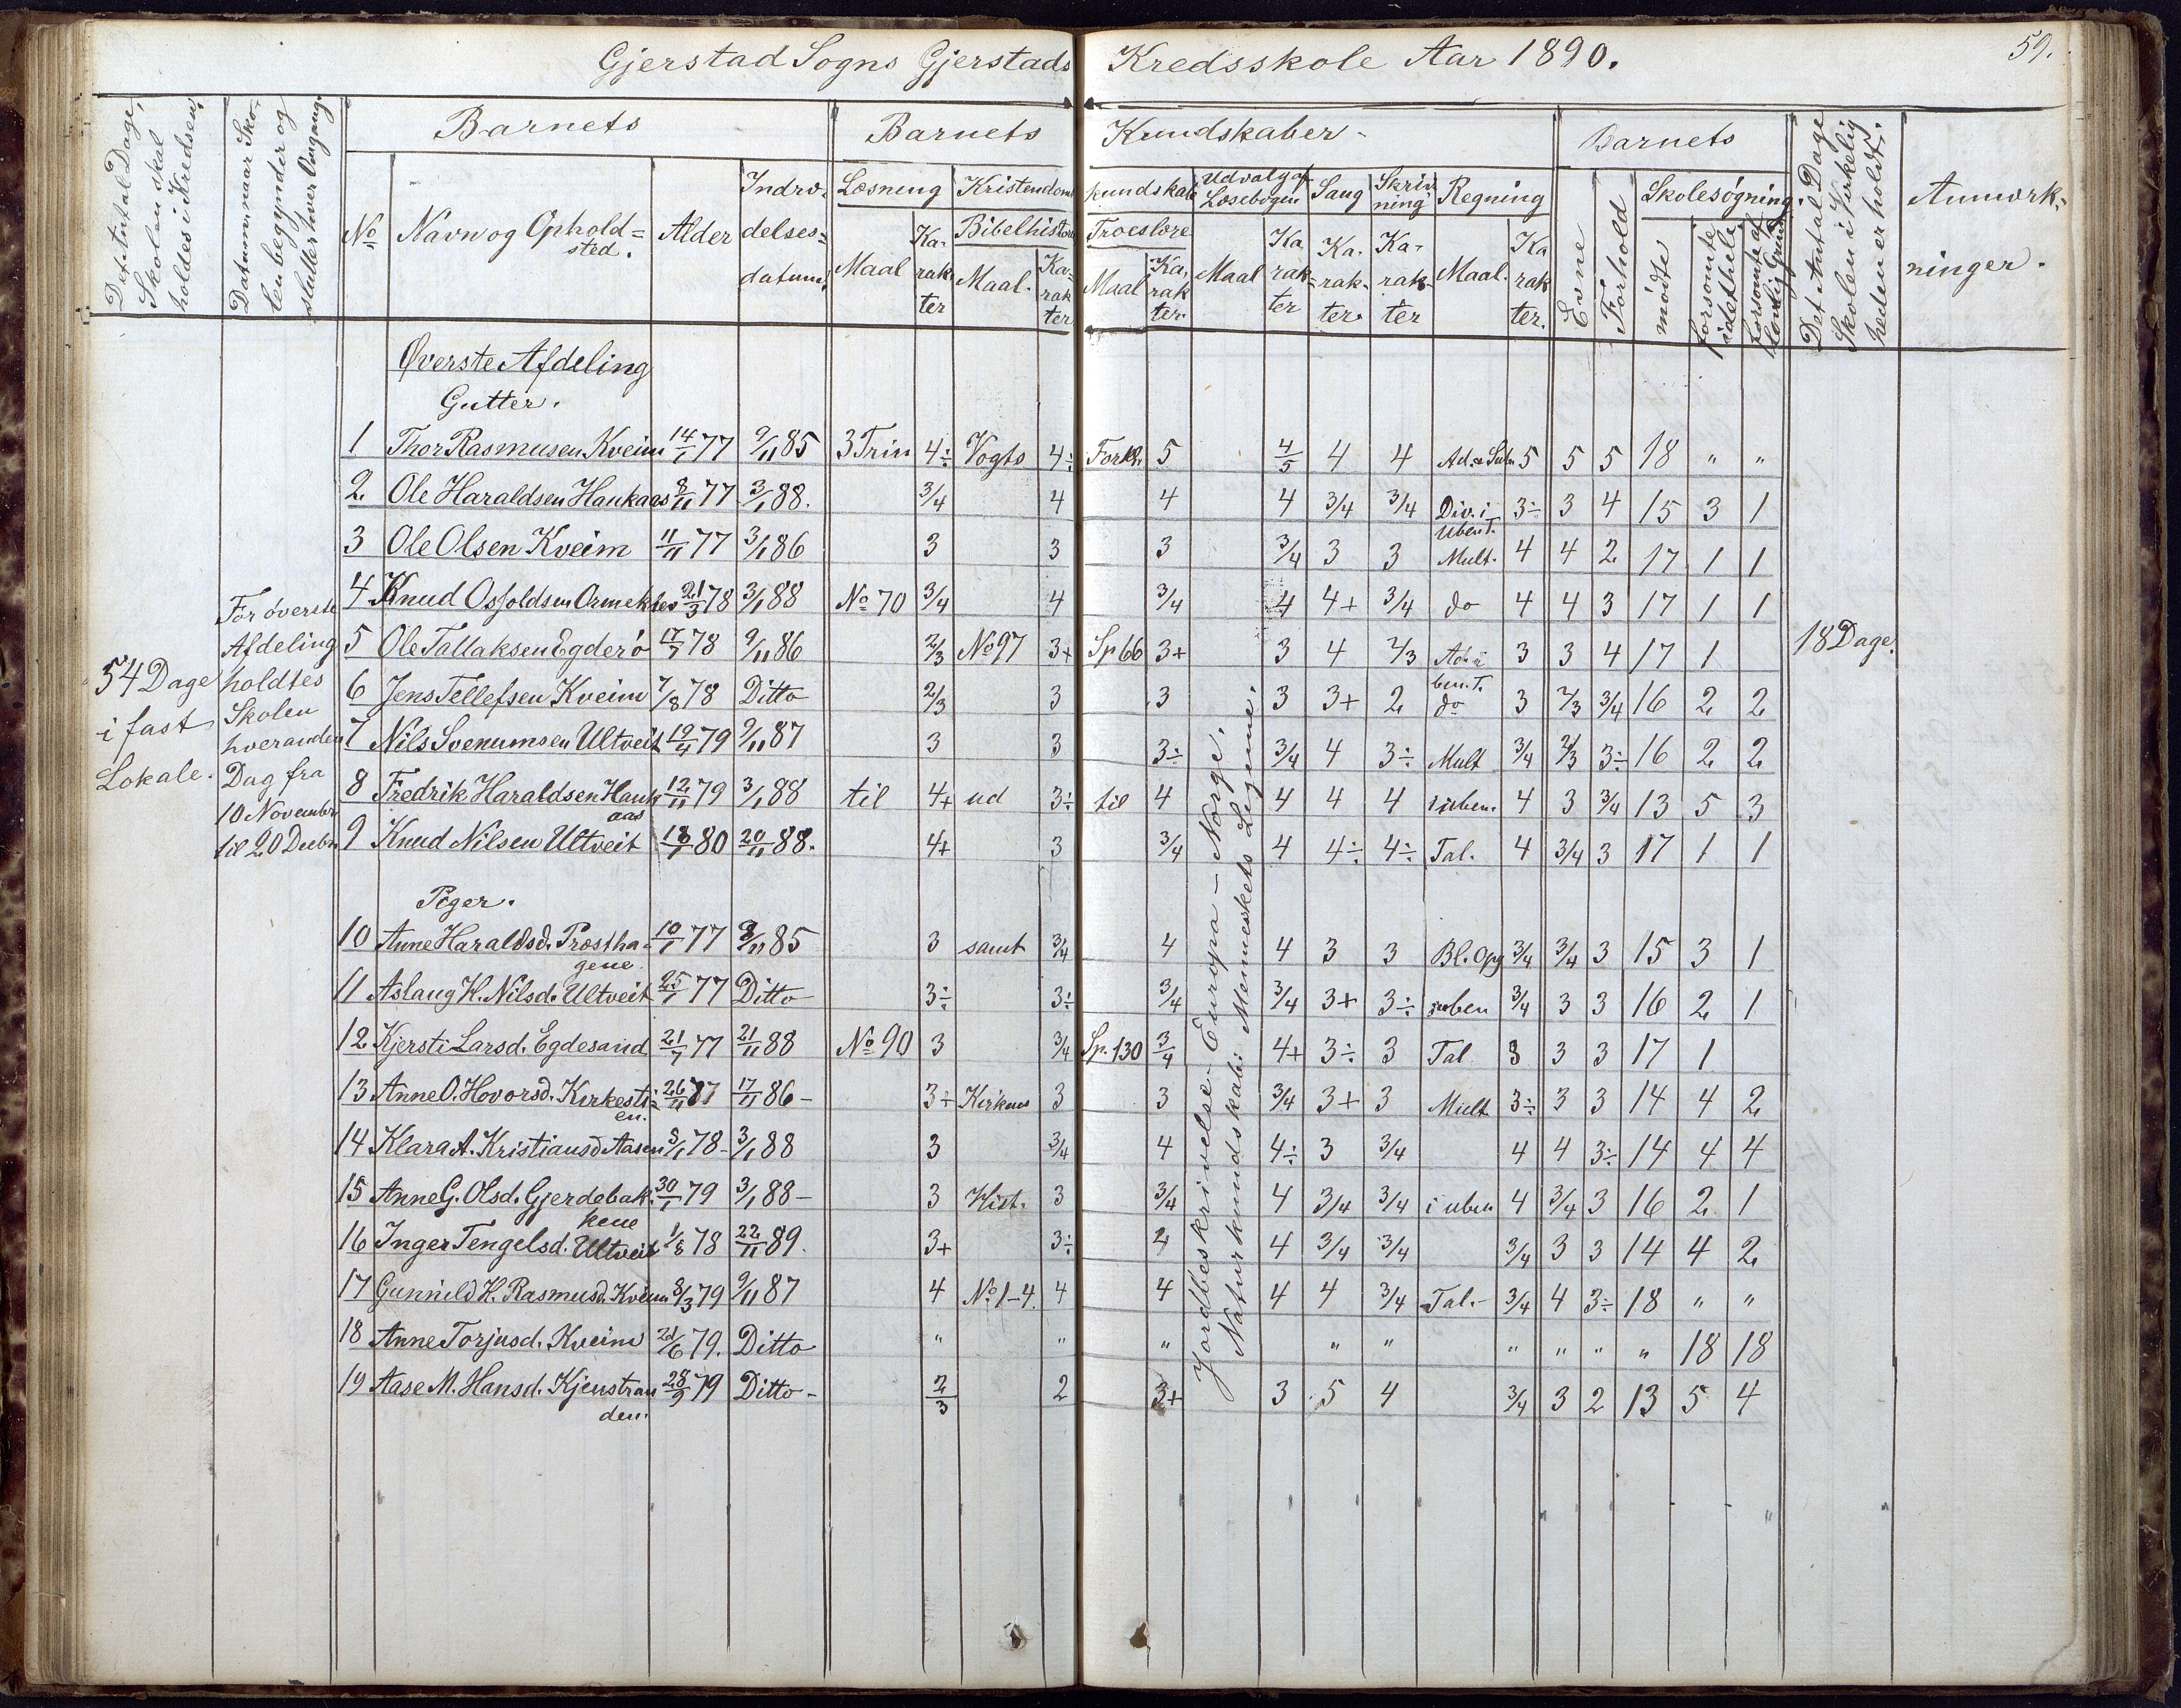 Gjerstad Sogns Gjerstads Kredsskole Aar 1890. 59.
Det Antal Dage, Skolen skal holdes i Kredsen.
Datum naar Skolen begynder og slutter hver Omgang.
Barnets
No Navn og Opholdssted. Alder Indtrædelsesdatum.
Barnets Kundskaber
Læsning Kristendomskundskab Udvalg af Læsebogen Sang Skrivning Regning
Maal Karakter Bibelhistorie Maal. Karakter Troeslære Maal Karakter. Maal Karakter Karakter Karakter Maal. Karakter.
Barnets
Evne Forhold Skolesøgning. mødte forsømte i det hele forsømte af lovlig Grund
Det Antal Dage Skolen i Virkeligheden er holdt.
Anmærkninger.
54 Dage i fast Lokale.
For øverste Afdeling holdtes Skolen hveranden Dag fra 10 November til 20 Decbr.
18 Dage.
Øverste Afdeling
Gutter.
1 Thor Rasmusen Kveim 14/1 77 9/11 85 3 Trin 4÷ Vogts 4÷ Forkl. 5 4/5 4 4 Ad. & Sub. 5 5 5 18 " "
2 Ole Haraldsen Haukaas 8/11 77 3/1 88. 3/4 4 4 4 3/4 3/4 Div. i uben T. 3÷ 3 4 15 3 1
3 Ole Olsen Kveim 11/11 77 3/1 86 3 3 3 3/4 3 3 Mult. 4 4 2 17 1 1
4 Knud Osfoldsen Ormekler 21/3 78 3/1 88 No 70 3/4 4 3/4 4 4+ 3/4 do 4 4 3 17 1 1
5 Ole Tallaksen Egderø 17/7 78 9/11 86 2/3 No 97 3+ Sp 66 3+ 3 4 2/3 Ad. i ben. T. 3 3 4 17 1
6 Jens Tellefsen Kveim 7/8 78 Ditto 2/3 3 3 3 3+ 2 do 3 2/3 3/4 16 2 2
7 Nils Svenumsen Ultveit 19/4 79 9/11 87 3 3 3÷ 3/4 4 3÷ Mult 3/4 2/3 3÷ 16 2 2
8 Fredrik Haraldsen Haukaas 12/11 79 3/1 88 til 4+ ud 3÷ til 4 4 4 4 i uben. 4 3 3/4 13 5 3
9 Knud Nilsen Ultveit 80 20/11 88. 4+ 3 3/4 4 4÷ 4÷ Tal. 4 3/4 3 17 1 1
Piger.
10 Anne Haraldsd. Præsthagene 10/1 77 9/11 85 3 samt 3/4 4 4 3 3 Bl. Opg 3/4 3/4 3 15 3 1
11 Aslaug K. Nilsd. Ultveit 25/1 77 Ditto 3÷ 3÷ 3/4 3/4 3+ 3÷ i uben 3/4 3 3 16 2 1
12 Kjersti Larsd. Egdesand 21/7 77 21/11 88 No 90 3 3/4 Sp. 130 3/4 4+ 3÷ 3 Tal 3 3 3 17 1
13 Anne O. Hovorsd. Kirkestien. 26/11 77 17/11 86 – 3÷ Kirkens 3 3 3/4 3+ 3 Mult 3÷ 3 3 14 4 2
14 Klara A. Kristiansd Aasen 3/1 78 – 3/1 88 3 3/4 4 4÷ 3 3/4 4 4 3÷ 14 4 4
15 Anne G. Olsd. Gjerdebakkene 30/1 79 3/1 88 – 3 Hist. 3 3/4 4 3/4 3/4 i uben 4 3/4 3 16 2 1
16 Inger Tengelsd. Ultveit 1/8 78 22/11 89. 3+ 3÷ 4 4 3/4 3/4 3/4 3 3 14 4 2
17 Gunnild K. Rasmusd. Kveim 8/3 79 9/11 87 4 No 1–4. 4 4 4 4 3/4 Tal.– 3/4 4 3÷ 18 " "
18 Anne Torjusd. Kveim 21/6 79. Ditto " " " " " " " " " 18 18
19 Aase M. Hansd. Kjenstranden. 28/9 79 Ditto – 2/3 2 3+ 3 5 4 3/4 3 2 13 5 4
Jordbeskrivelse. Europa – Norge.
Naturkundskab: Menneskets Legeme.